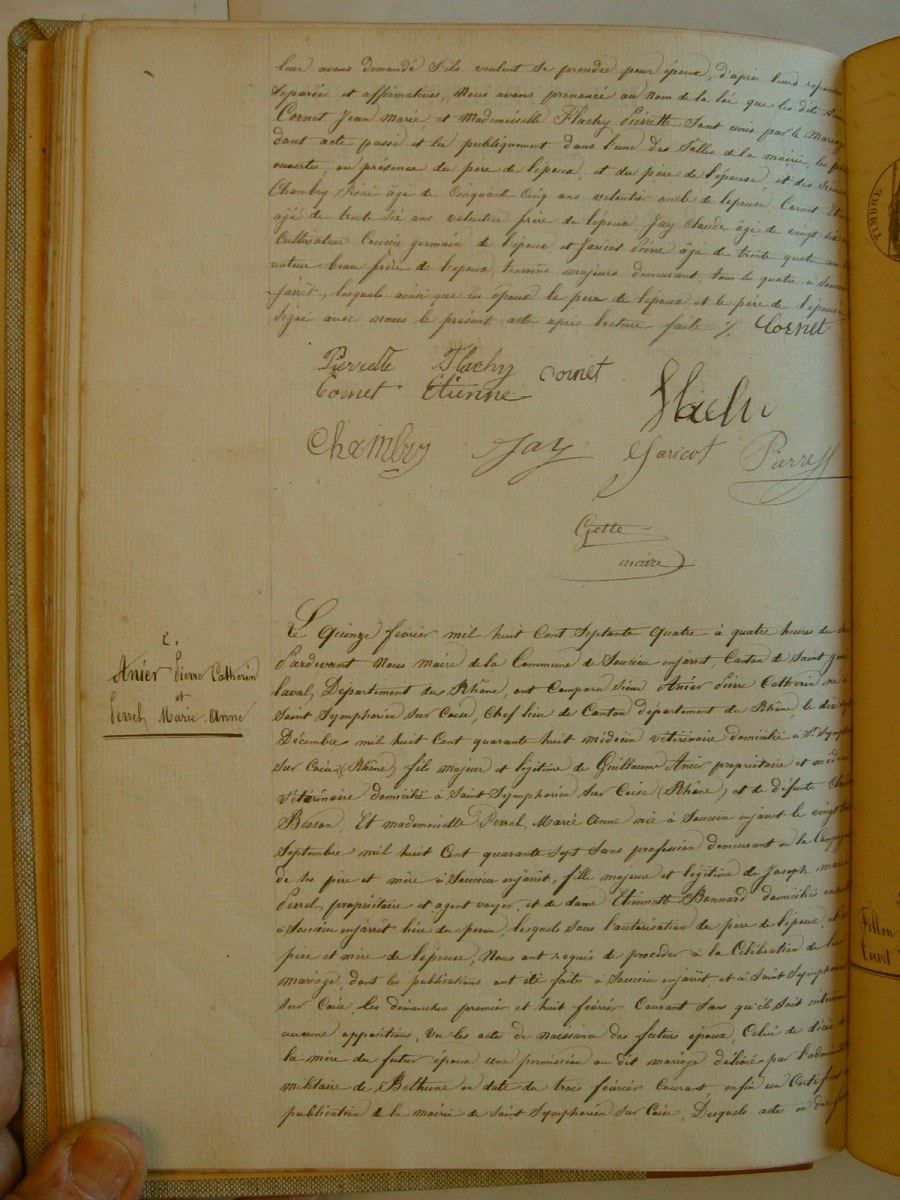 leur avons demandé s'ils veulent se prendre pour époux, d'après leurs réponses
séparées et affirmatives, Nous avons prononcé au Nom de la loi que les dits
Cornet Jean Marie, et Mademoiselle Flachy Pierrette Sont unis par le Mariage
dont acte passé et lu publiquement dans l'une des Salles de la mairie, les
ouvertes, en présence du père de l'époux, et du père de l'épouse, et des Sieurs
Chambry âgé de Cinquant Cinq ans veloutier oncle de l'épouse, Cornet
agé de trente Six ans veloutier frère de l'époux, Jay Claude âgé de vingt
Cultivateur Cousin germain de l'époux, et Jaricot Pierre âgé de trente quatre
beau frère de l'époux, temoins majeurs demeurant tous les quatre à
Jarêt, lesquels ainsi que les époux le père de l'époux et le père de l'épouse
signé avec nous le présent acte après lecture faite ./. Cornet
Pierrette Flachy Cornet
Cornet Etienne
Flachy
Chambry Jay Jaricot Pierre
maire
2.
Anier Pierre Catherin
et
Perrel Marie Anne
Le Quinze février mil huit Cent Septante quatre à quatre heures du
Pardevant Nous maire de la Commune de Soucieu enjarret, Canton de Saint
laval, Département du Rhône, ont Comparu Sieur Anier Pierre Catherin né à
Saint Symphorien Sur Coise, Chef lieu de Canton département du Rhône, le
Décembre mil huit Cent quarante huit médecin vétérinaire domicilié à St
Sur Coise (Rhône) fils majeur et légitime de Guillaume Anier propriétaire et
vétérinaire domicilié à Saint Symphorien Sur Coise (Rhône) et de défunte
Besson, Et mademoiselle Perrel Marie Anne née à Soucieu enjarret le vingt
Septembre mil huit Cent quarante Sept Sans profession demeurant en la Compagnie
de Ses père et mère à Soucieu enjarrêt, fille majeure et légitime de Joseph
Perrel propriétaire et agent voyer, et de dame Etiennette Bonnard domiciliés
à Soucieu enjarrêt lesquels Sous l'autorisation du père de l'époux, et
père et mère de l'épouse, Nous ont requis de procéder à la Célébration de leur
mariage, dont les publications ont été faites à Soucieu enjarrêt, et à Saint Symphorien
sur Coise, les dimanches premier et huit février Courant Sans qu'il Soit
aucune oppositions, Vu les acte de naissance des futurs époux, Celui de décès de
la mère du futur époux une permission au dit mariage délivré par
militaire de Bethune en date du trois février Courant enfin un Certificat
publication de la mairie de Saint Symphorien Sur Coise, Desquels actes
TIMBRE
Fillon